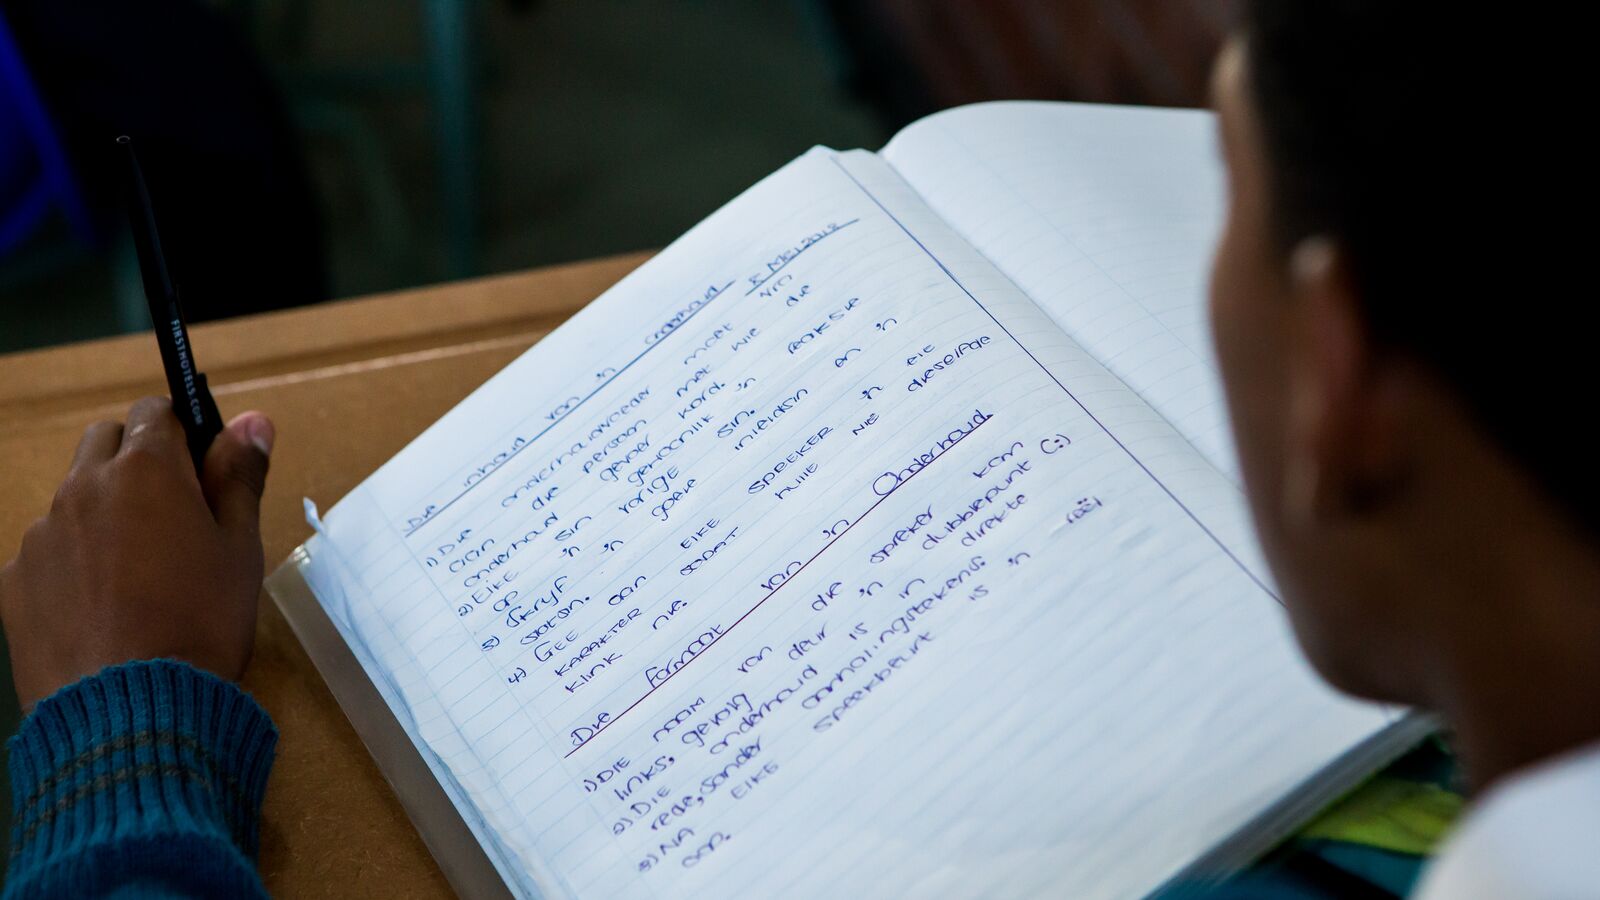 Die inhoud van 'n Onderhoud 8 Mei 2018
1) Die onderhoudvoeder moet
aan die persoon met wie die
onderhoud gevoer kord.
2) ELKE 'n sin gewoonlik 'n reaksie
op 'n vorige sin.
3) Skryf 'n goeie inleidsin en 'n
slotsin.
4) GEE aan ELKE SPREKER 'n eie
KARAKTER sodat hulle nie dieselfde
klink nie.
Die formaat van 'n Onderhoud.
1) DIE naam van die spreker kom
links, gevolg deur 'n dubblepunt (:)
2) DIE onderhoud is in direkte
rede, sonder aanhalingstekens.
3) NA ELKE spreekbeurt is 'n reël
oop.
FIRSTHOTELS.COM